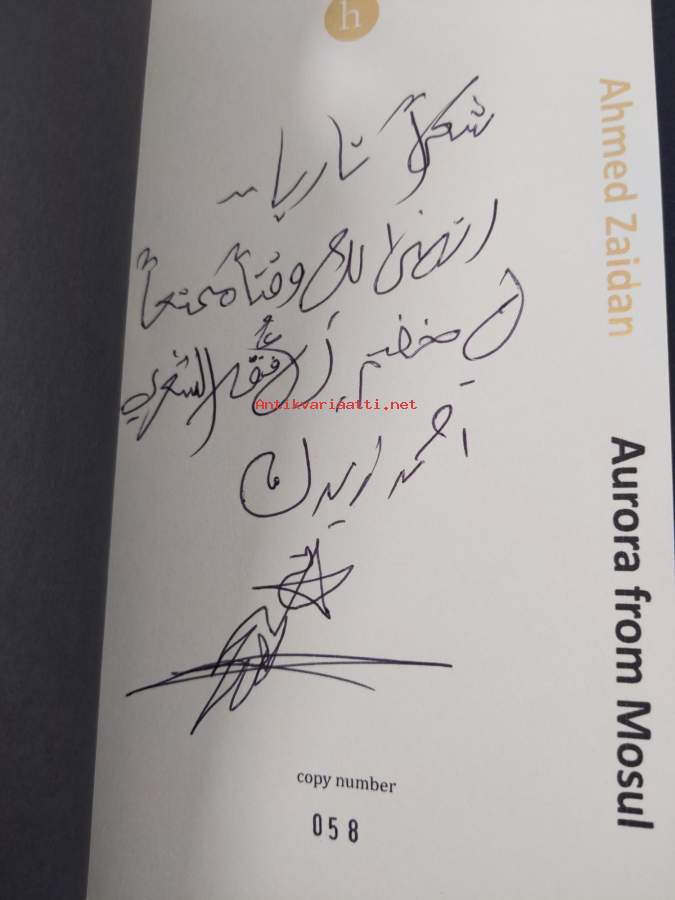 h
Ahmed Zaidan
Aurora from Mosul
شكراً تاريا..
اتمنى لك وقتاً ممتعاً
في خضم أفق الشعري
احمد زيدان
Antikvariaatti.net
copy number
058